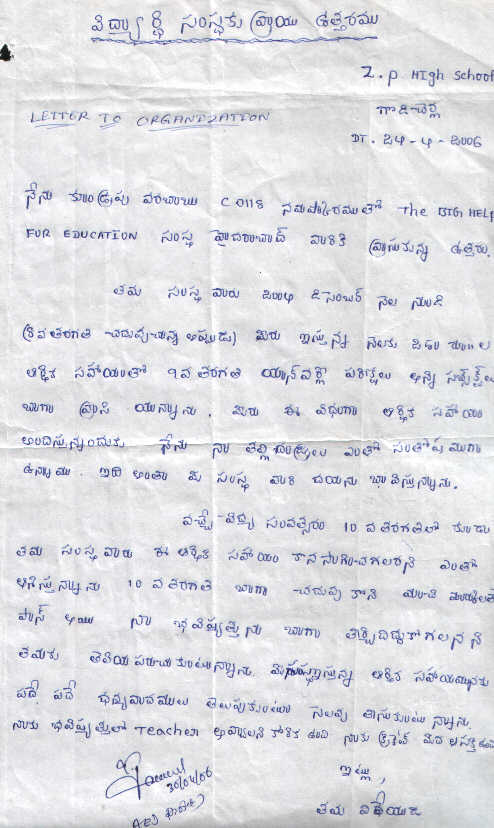 విద్యార్థి సంస్థకు వ్రాయు ఉత్తరము
Z.P. High School
గాదిచర్ల
LETTER TO ORGANIZATION
DT. 24-4-2006
నేను C0118 నమస్కారముతో The BIG HELP
FOR EDUCATION సంస్థ హైదరాబాద్ వారికి వ్రాయుచున్న ఉత్తరం.
తమ సంస్థ వారు 2004 డిసెంబర్ నెల నుండి
(8వ తరగతి చదువుచున్న అప్పుడు) మీరు ఇస్తున్న నెలకు రూ॥ల
ఆర్థిక సహాయంతో 9వ తరగతి పరీక్షలు అన్ని
బాగా వ్రాసి యున్నాను. మీరు ఈ విధంగా ఆర్థిక సహాయం
అందిస్తున్నందుకు నేను నా తల్లిదండ్రులు ఎంతో సంతోషముగా
ఉన్నాము. ఇది అంతా మీ సంస్థ వారి దయను భావిస్తున్నాను.
వచ్చే విద్య సంవత్సరం 10వ తరగతిలో కూడు
తమ సంస్థ వారు ఈ ఆర్థిక సహాయం కొనసాగించగలరని ఎంతో
ఆశిస్తున్నాను 10వ తరగతి బాగా చదువుకొని మంచి మార్కులతో
పాస్ అయి నా భవిష్యత్తును బాగా తీర్చిదిద్దుకోగలనని
తమకు తెలియపరుచుకుంటున్నాను. ఆర్థిక సహాయమునకు
పదే పదే ధన్యవాదములు తెలుపుకుంటూ సెలవు తీసుకుంటున్నాను.
నాకు భవిష్యత్తులో Teacher అవ్వాలని కోరిక ఉంది నాకు
ఇట్లు,
30/04/06
తమ విధేయుడు